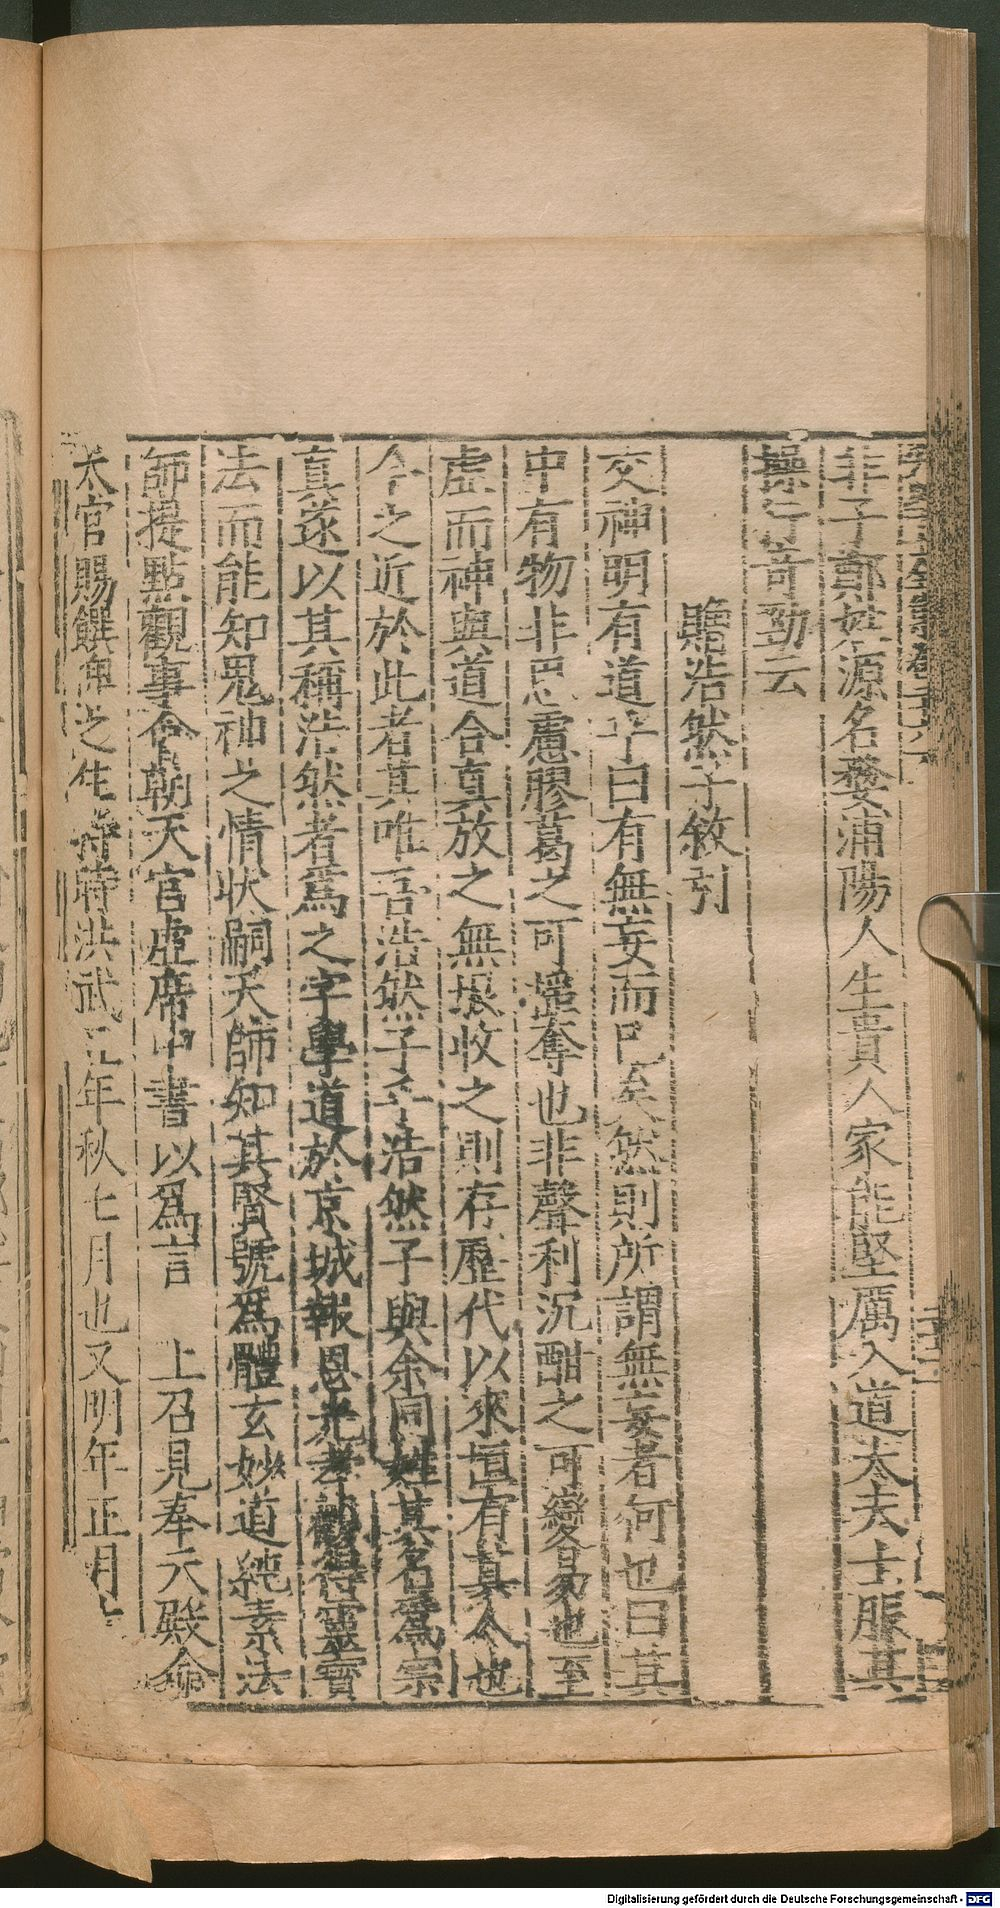 非子鄭姓源名婺浦陽人生貴人家能堅厲入道太夫士服其
操行奇勁云
贈浩然子敘引
交神明有道乎曰有無妄而已矣然則所謂無妄者何也曰其
中有物非思慮膠葛之可摇奪也非聲利沉酣之可變易也至
虛而神與道合真放之無垠收之則存歷代以來恒有其人也
今之近於此者其唯吾浩然子乎浩然子與余同姓其名爲宗
真遂以其稱浩然者爲之字學道於京城報恩光孝觀得靈寶
法而能知鬼神之情狀嗣天師知其賢號爲體玄妙道純素法
師提點觀事會朝天官虛席中書以爲言 上召見奉天殿俞
太官賜饌俾之住持時洪武 年秋七月也又明年正月
Digitalisierung gefördert durch die Deutsche Forschungsgemeinschaft - DFG